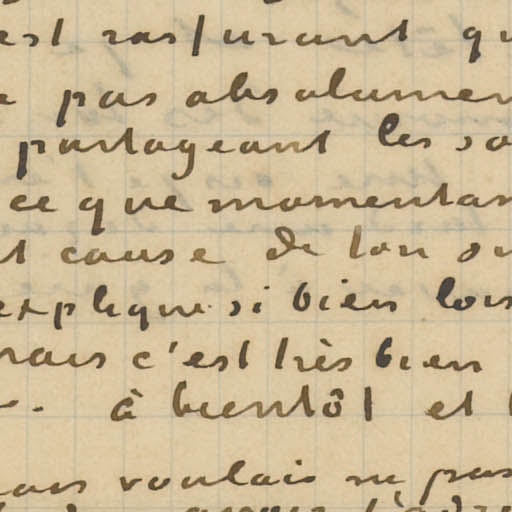 est rassurant qu
pas absolumen
partageant les so
ce que momentan
t cause de ton su
explique si bien lors
mais c'est très bien
à bientôt et
voulais ne pas